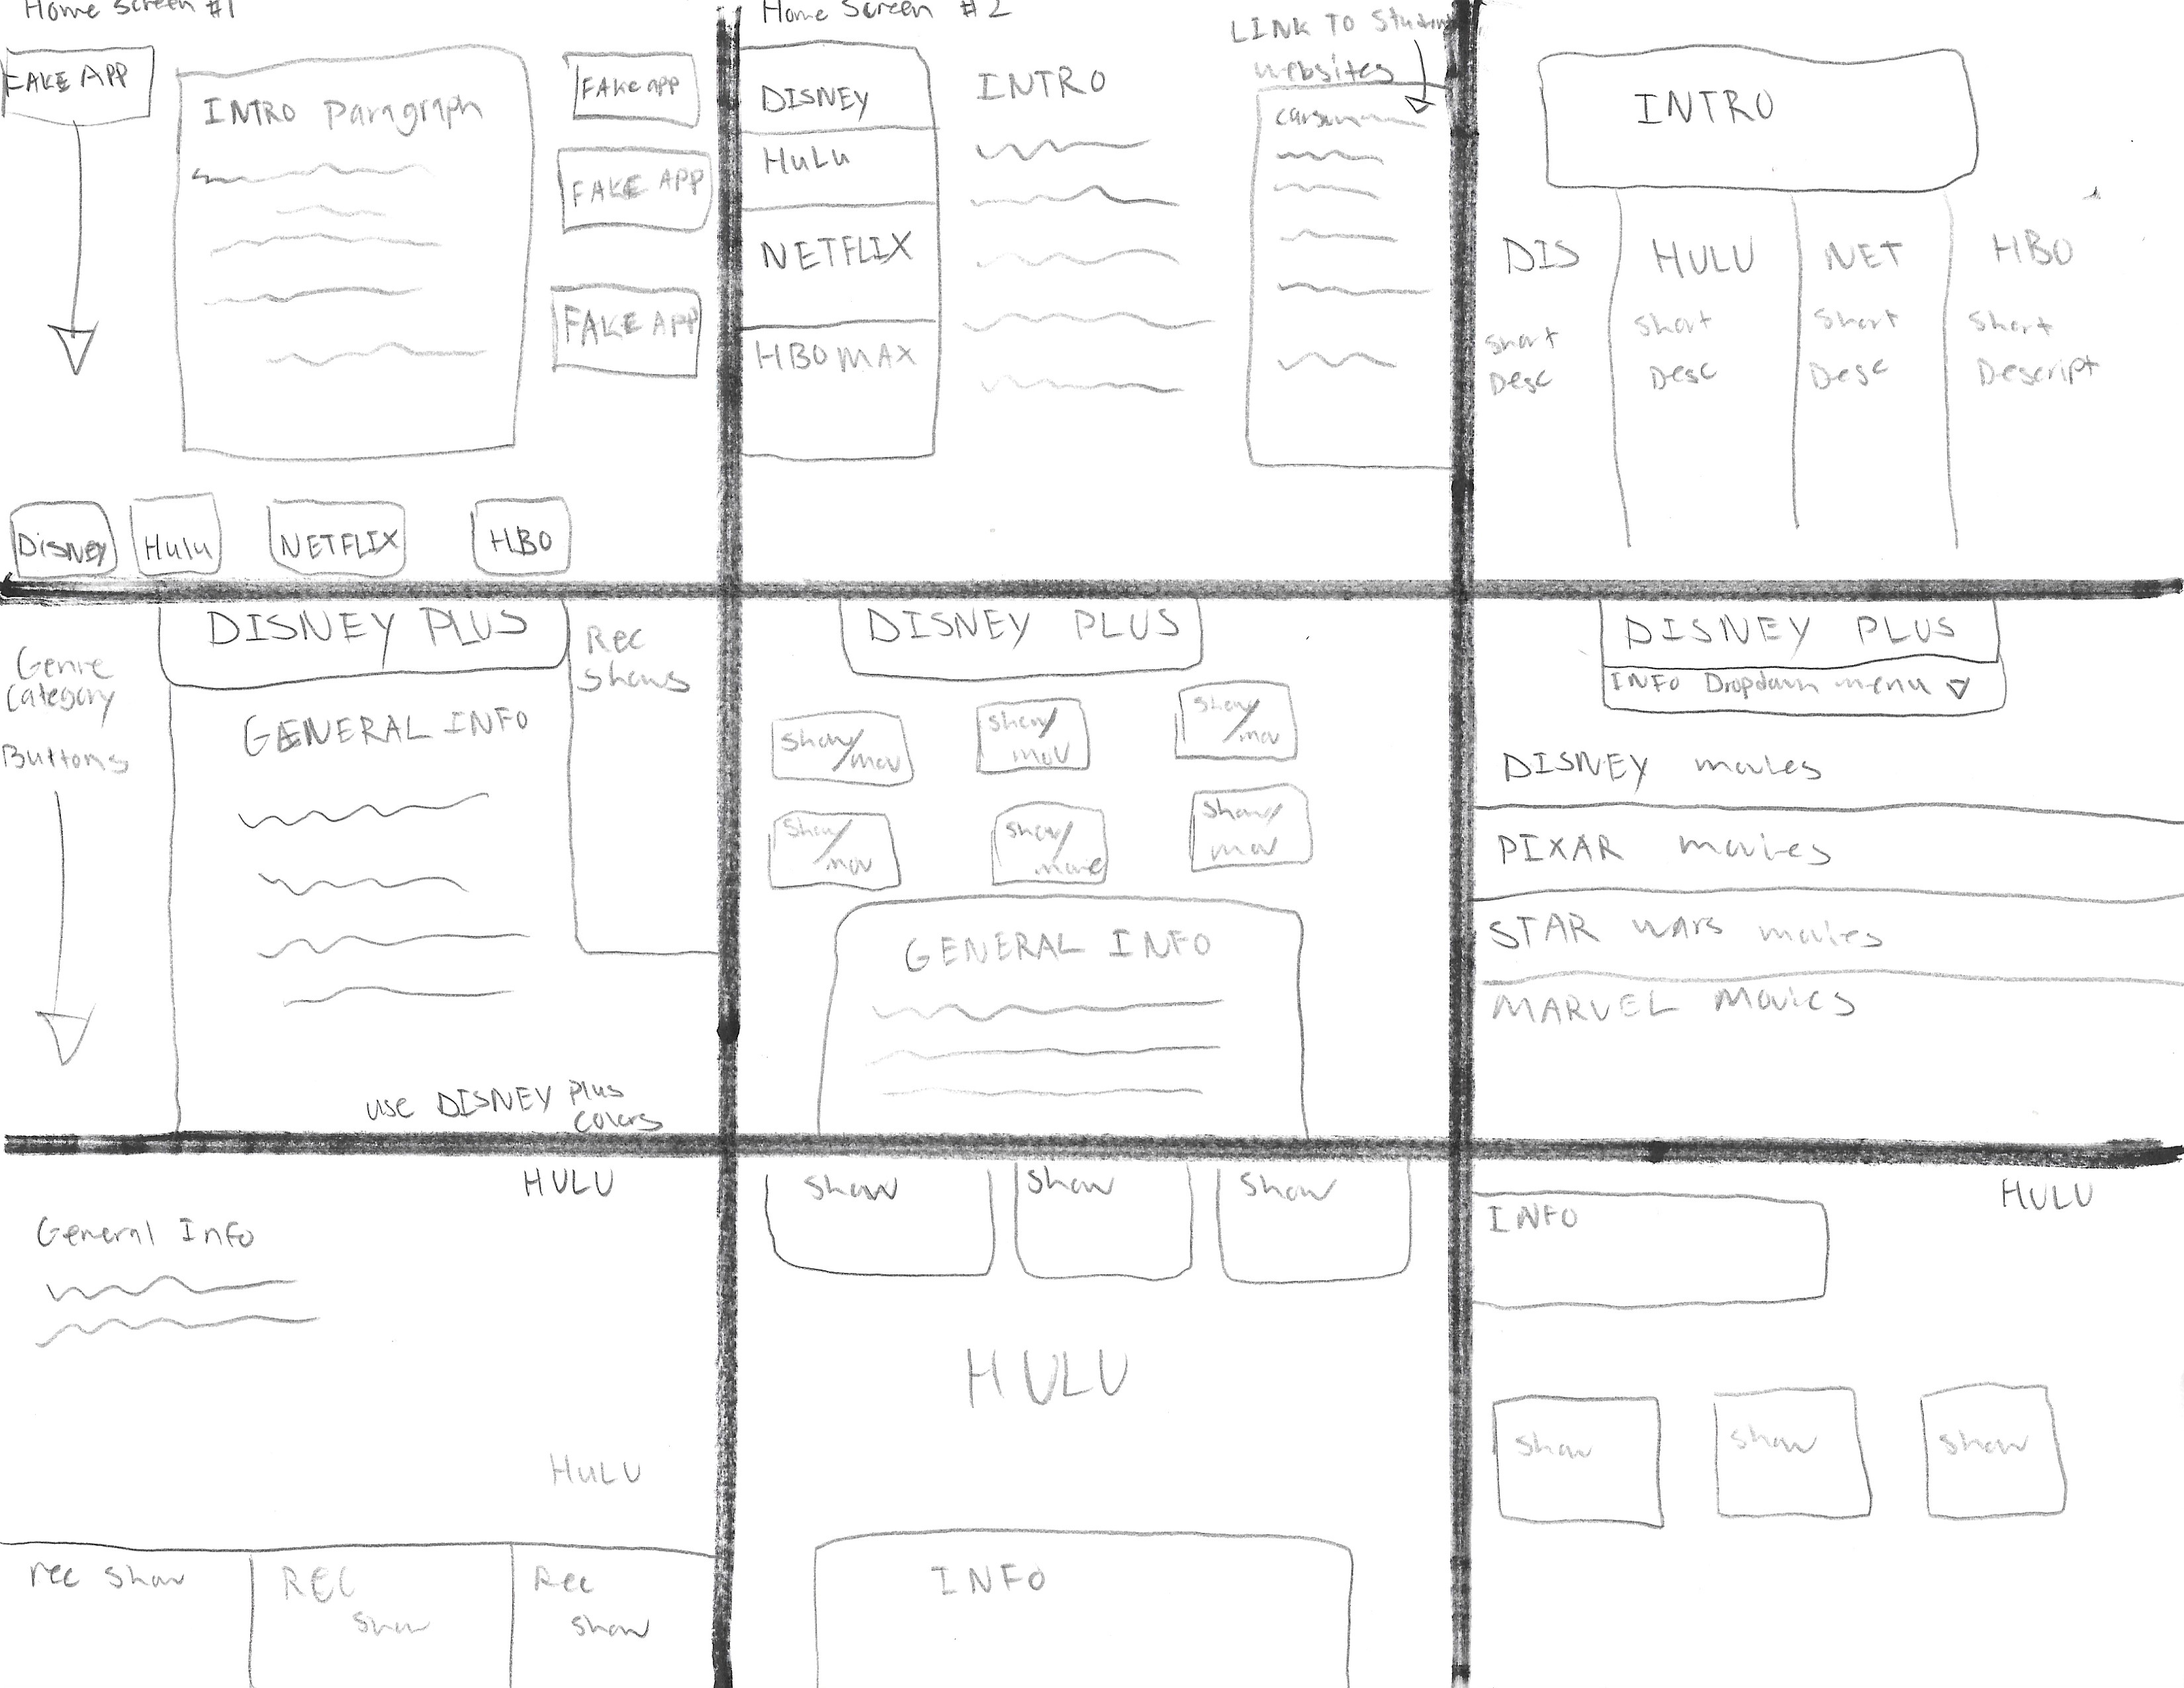 Home Screen #1
FAKE APP
INTRO Paragraph
FAKe app
FAKE APP
FAKE APP
Disney
Hulu
NETFLIX
HBO
Home Screen #2
LINK TO
websites
DISNEY
HuLu
NETFLIX
HBO MAX
INTRO
INTRO
DIS
HULU
NET
HBO
Short
Desc
Short
Desc
Short
Desc
Short
Descript
DISNEY PLUS
Genre
Category
Buttons
GENERAL INFO
Rec
Shows
use DISNEY Plus
Colors
DISNEY PLUS
Show/
mov
Show/
mov
Show/
mov
Show/
mov
Show/
movie
Show/
mov
GENERAL INFO
DISNEY PLUS
INFO Dropdown menu
DISNEY movies
PIXAR movies
STAR wars movies
MARVEL Movies
HULU
General Info
HULU
rec show
REC
show
Rec
show
Show
Show
Show
HULU
INFO
HULU
INFO
Show
Show
Show